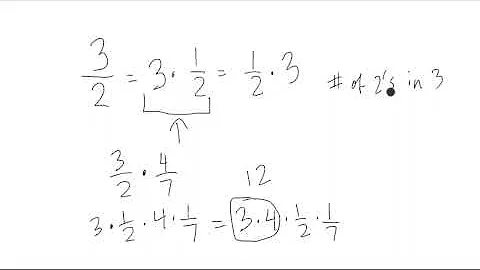 3/2 = 3 · 1/2 = 1/2 · 3
# of 2's in 3
3/2 · 4/7
12
3 · 1/2 · 4 · 1/7 = 3 · 4 · 1/2 · 1/7